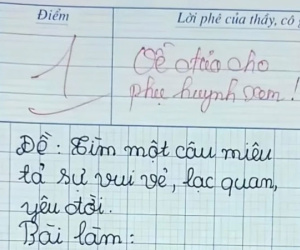 Điểm
Lời phê của thầy, cô
1
Về đưa cho
phụ huynh xem!
Đề: Tìm một câu miêu
tả sự vui vẻ, lạc quan,
yêu đời.
Bài làm: